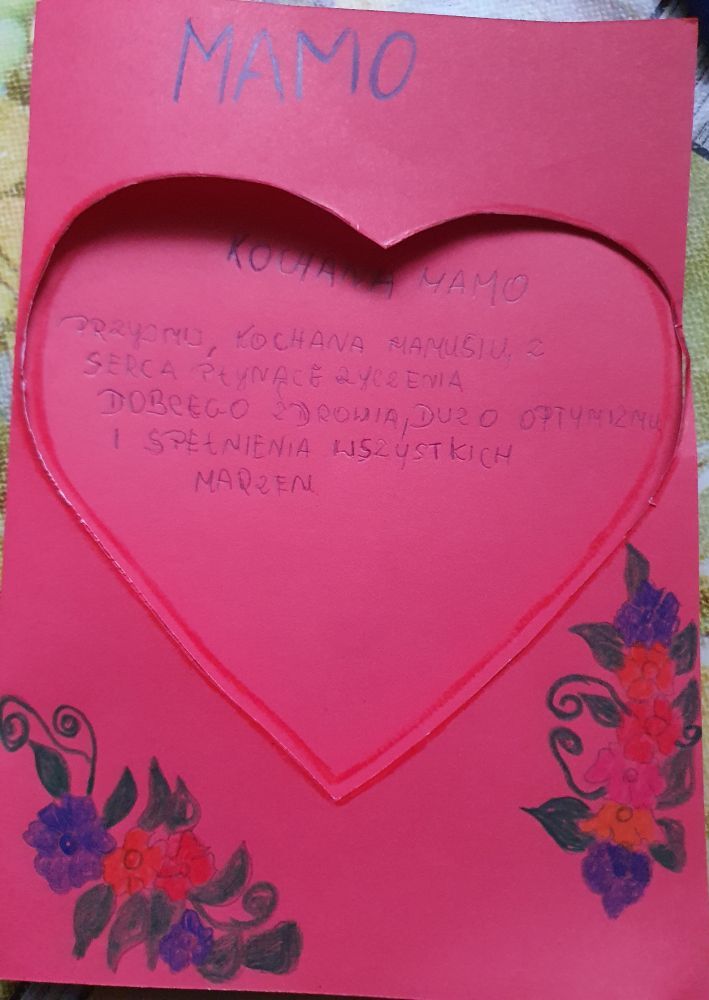 MAMO
KOCHANA MAMO
PRZYJMIJ, KOCHANA MAMUSIU, Z
SERCA PŁYNĄCE ŻYCZENIA
DOBREGO ZDROWIA, DUŻO OPTYMIZMU
I SPEŁNIENIA WSZYSTKICH
MARZEŃ